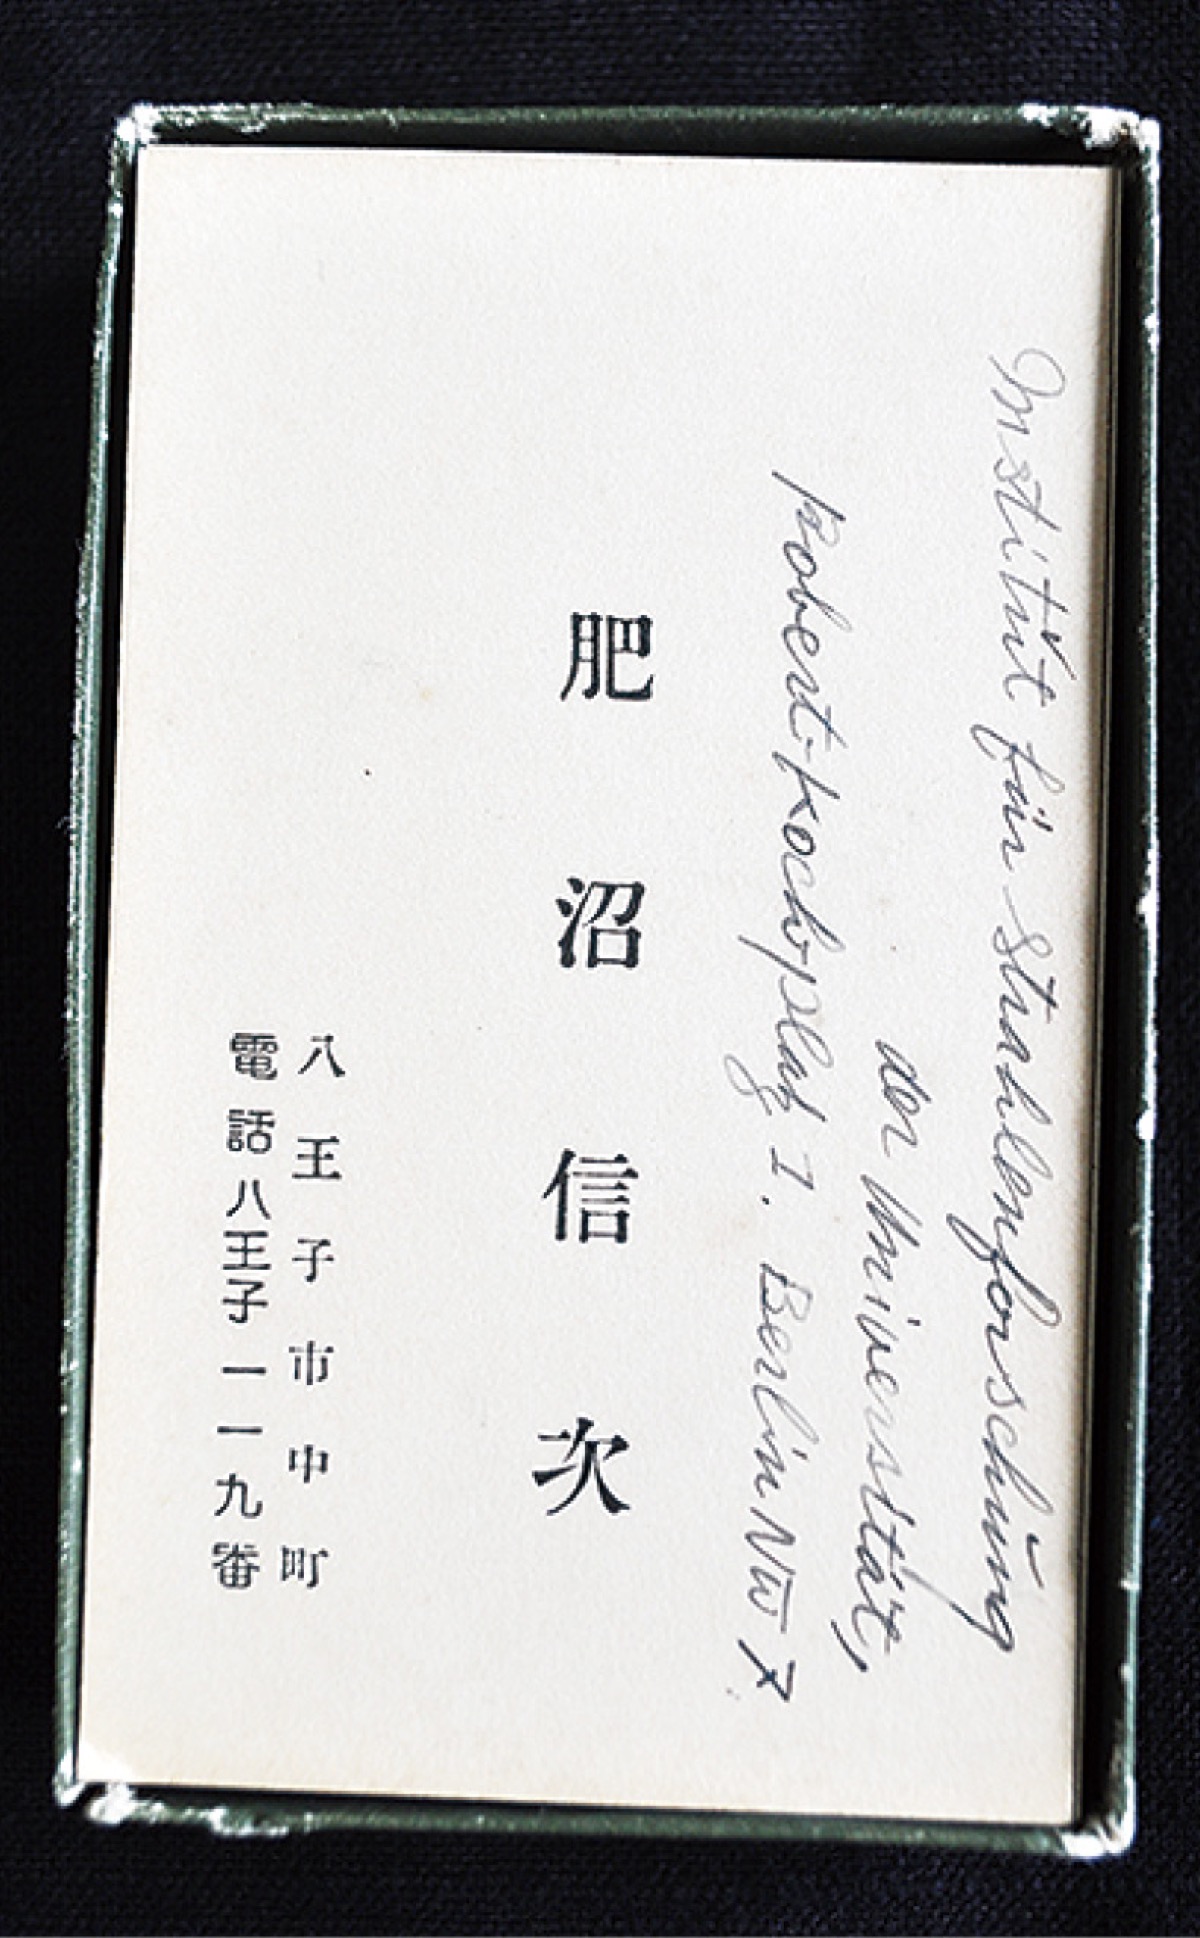 Institut für Strahlenforschung
der Universität,
Robert-Kochplatz 1. Berlin NW 7
肥沼信次
八王子市中町
電話八王子一一九番